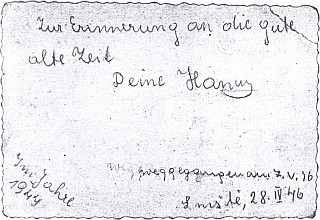 Zur Erinnerung an die gute
alte Zeit
Deine Hanny
Im Jahre
1944
weggegangen am 7. V. 46
28. IV 46